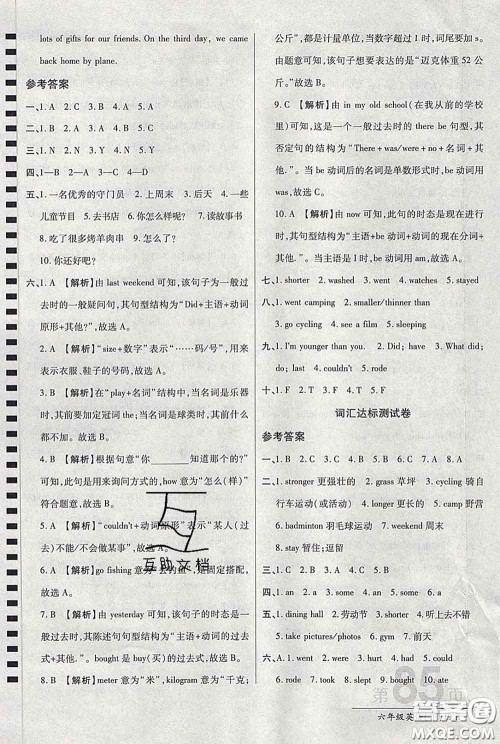 lots of gifts for our friends. On the third day, we came
back home by plane.
参考答案
一、1. A 2. C 3. B 4. A 5. A
二、1. B 2. A 3. C 4. B 5. C
三、1. N 2. Y 3. N 4. Y 5. Y
四、1—B 2—A 3—E 4—C 5—D
五、1. 一名优秀的守门员 2. 上周末 3. 后天 4. 一些
儿童节目 5. 去书店 6. 你怎么样呢? 7. 读故事书
8. 吃了很多烤羊肉串 9. 怎么了?
10. 你还好吧?
六、1. A 【解析】由 last weekend 可知，该句子为一般过
去时的一般疑问句，其句型结构为“Did+主语+动词
原形+其他?”,故选 A。
2. A 【解析】“size+数字”表示“……码/号”，用来
表示衣服、鞋子的号码。故选 A。
3. B 【解析】在“play+名词”结构中，当名词是乐器
时，其前要加定冠词 the。当名词是球类时，其前什么
都不加。故选 B。
4. B 【解析】根据句意“你______知道那个的?”
可知，此处是用来询问方式的，how 意为“怎么(样)”
符合题意，故选 B。
5. A 【解析】“couldn't+动词原形”表示“某人(过
去)不能/不会做某事”，故选 A。
6. A 【解析】go fishing 意为“去钓鱼”,是固定搭配，
故选 A。
7. B 【解析】由 yesterday 可知，该句子的时态是一般
过去时，其陈述句句型结构为“主语+动词过去式+
其他.”。bought 是 buy(买)的过去式，故选 B。
8. B 【解析】meter 意为“米”，kilogram 意为“千克;
公斤”，都是计量单位，当数字大于一时，词尾要加 s。
由题意可知，该句子想要表达的是“迈克体重 52 公
斤。”故选 B。
9. C 【解析】由 in my old school(在我从前的学校
里)可知，这是一个一般过去时的 there be 句型，其
否定句的结构为“There+was/were+no+名词+其
他.”，当 be 动词后的名词是单数形式时，be 动词用
was。故选 C。
10. A 【解析】由 now 可知，此句的时态是现在进行
时，其句型结构为“主语+be 动词+动词的现在分词+
其他.”当主语是 I 时，be 动词用 am，故选 A。
七、1. shorter 2. washed 3. went 4. watches 5. stayed
八、1. went camping 2. smaller/thinner than
3. go cycling 4. see a film 5. took part in
九、1. I'm younger than you. 2. Did; have 3. What; did
4. last; could 5. couldn't 6. rode
十、1. F 2. F 3. T 4. F 5. T
词汇达标测试卷
参考答案
一、1. stronger 更强壮的 2. grass 草坪 3. cycling 骑自
行车运动(或活动) 4. longer 更长的 5. camp 野营
6. badminton 羽毛球运动 7. weekend 周末
8. stay 暂住;逗留
三、1. C 2. B 3. A 4. B 5. C
四、1. B 2. C 3. A 4. A 5. A
五、1. dining hall 2. 劳动节 3. started to 4. 吃坏的食物
5. take pictures/photos 6. gym 7. five years ago
六、1. went 2. heavier 3. slept 4. did 5. couldn't
互助文档
第85页
六年级英
答案圈
MXQE.COM